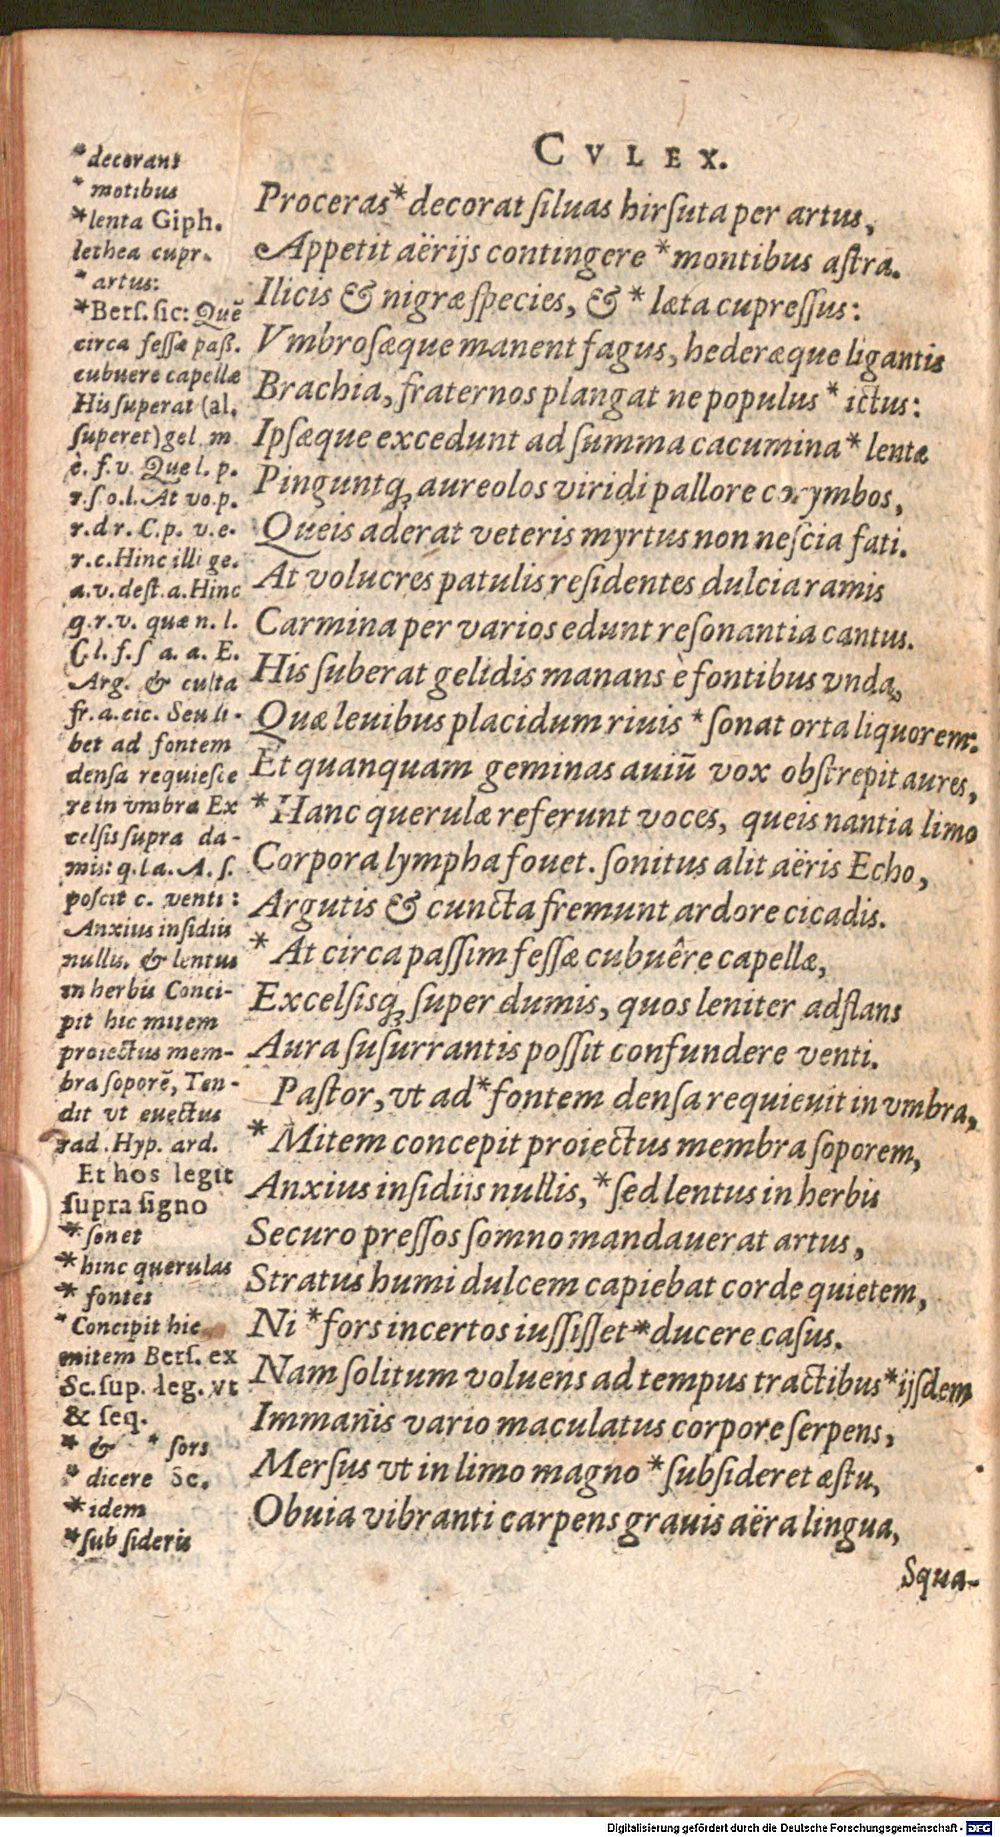 CVLEX.
Proceras* decorat ſiluas hirſuta per artus,
Appetit aërijs contingere *montibus aſtra.
Ilicis & nigræ ſpecies, & * læta cupreſſus:
Vmbroſæque manent fagus, hederæque ligantis
Brachia, fraternos plangat ne populus * ictus:
Ipſæque excedunt ad ſumma cacumina* lentæ
Pinguntq́; aureolos viridi pallore corymbos,
Queis aderat veteris myrtus non neſcia fati.
At volucres patulis reſidentes dulcia ramis
Carmina per varios edunt reſonantia cantus.
His ſuberat gelidis manans è fontibus vnda,
Quæ leuibus placidum riuis *ſonat orta liquorem.
Et quanquam geminas auiũ vox obſtrepit aures,
*Hanc querulæ referunt voces, queis nantia limo
Corpora lympha fouet. ſonitus alit aëris Echo,
Argutis & cuncta fremunt ardore cicadis.
* At circa paſſim feſſæ cubuêre capellæ,
Excelſisq́; ſuper dumis, quos leniter adſtans
Aura ſuſurrantis poſſit confundere venti.
Paſtor, vt ad*fontem denſa requieuit in vmbra,
* Mitem concepit proiectus membra ſoporem,
Anxius inſidiis nullis, *ſed lentus in herbis
Securo preſſos ſomno mandauerat artus,
Stratus humi dulcem capiebat corde quietem,
Ni *fors incertos iuſſiſſet*ducere caſus.
Nam ſolitum voluens ad tempus tractibus*ijſdem
Immanis vario maculatus corpore ſerpens,
Merſus vt in limo magno *ſubſideret æſtu,
Obuia vibranti carpens grauis aëra lingua,
Squa-
*decorant
* motibus
*lenta Giph.
lethea cupr.
* artus:
*Berſ. ſic: Quẽ
circa feſſæ paß.
cubuere capellæ
His ſuperat (al.
ſuperet) gel. m
è. f. v. Que l. p.
r. ſ o. l. At vo. p.
r. d r. C. p. v. e.
r. c. Hinc illi ge.
a. v. deſt. a. Hinc
q. r. v. quæ n. l.
C l. f. ſ a. a. E.
Arg. & culta
fr. a. cic. Seu li-
bet ad fontem
denſa requieſce
re in vmbra Ex
celſis ſupra da-
mis: q. l a. A. ſ.
poſcit c. venti:
Anxius inſidiis
nullis. & lentus
in herbis Conci-
pit hic mitem
proiectus mem-
bra ſoporẽ, Ten-
dit vt euectus
rad. Hyp. ard.
Et hos legit
ſupra ſigno
* ſonet
* hinc querulas
* fontes
* Concipit hic
mitem Berſ. ex
Sc. ſup. leg. vt
& ſeq.
* & * ſors
* dicere Sc.
*idem
*ſub ſideris
Digitalisierung gefördert durch die Deutsche Forschungsgemeinschaft - DFG